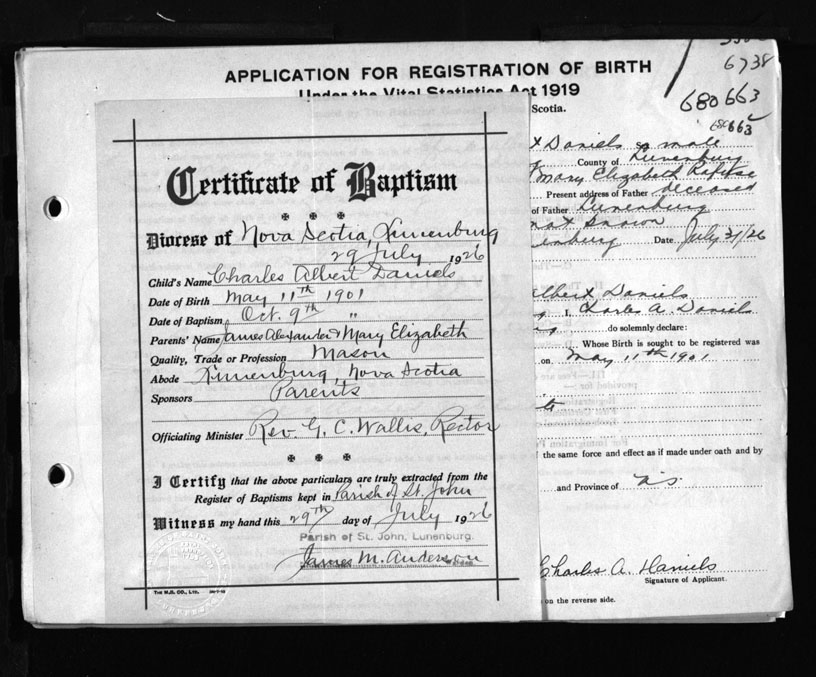 6738
APPLICATION FOR REGISTRATION OF BIRTH
Under the Vital Statistics Act 1919
Scotia.
680663
Certificate of Baptism
Diocese of Nova Scotia, Lunenburg
29 July 1926
Child's Name Charles Albert Daniels
Date of Birth May 11th 1901
Date of Baptism Oct. 9th "
Parents' Name James Alexander & Mary Elizabeth
Quality, Trade or Profession Mason
Abode Lunenburg, Nova Scotia
Sponsors Parents
Officiating Minister Rev. G. C. Wallis, Rector
I Certify that the above particulars are truly extracted from the
Register of Baptisms kept in Parish of St. John
Witness my hand this 29th day of July 1926
Parish of St. John, Lunenburg.
James M. Anderson
THE M.S. CO., LTD.
Daniels a male
County of Lunenburg
Mary Elizabeth
Present address of Father deceased
of Father Lunenburg
Date July 31/26
Daniels
I, Charles A. Daniels
do solemnly declare:
Whose Birth is sought to be registered was
on May 11th 1901
the same force and effect as if made under oath and by
and Province of N.S.
Charles A. Daniels
Signature of Applicant.
on the reverse side.